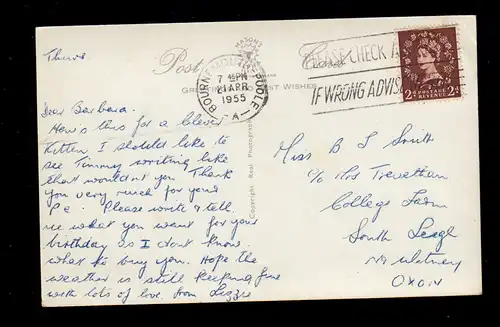 Thurs
Post Card
MASON'S
GREETINGS BEST WISHES
BOURNEMOUTH POOLE
7 45PM
21 APR
1955
A
PLEASE CHECK A
IF WRONG ADVISE
POSTAGE
REVENUE
2d 2d
Copyright Real Photograph
Dear Barbara.
How's this for a clever
kitten I should like to
see Timmy writing like
that wouldn't you Thank
you very much for your
P.C. Please write & tell
me what you want for your
birthday as I don't know
what to buy you. Hope the
weather is still keeping fine
with lots of love from Lizzie
Miss B J Smith
c/o Mrs Trevethan
College Farm
South Leigh
Nr Witney
OXON